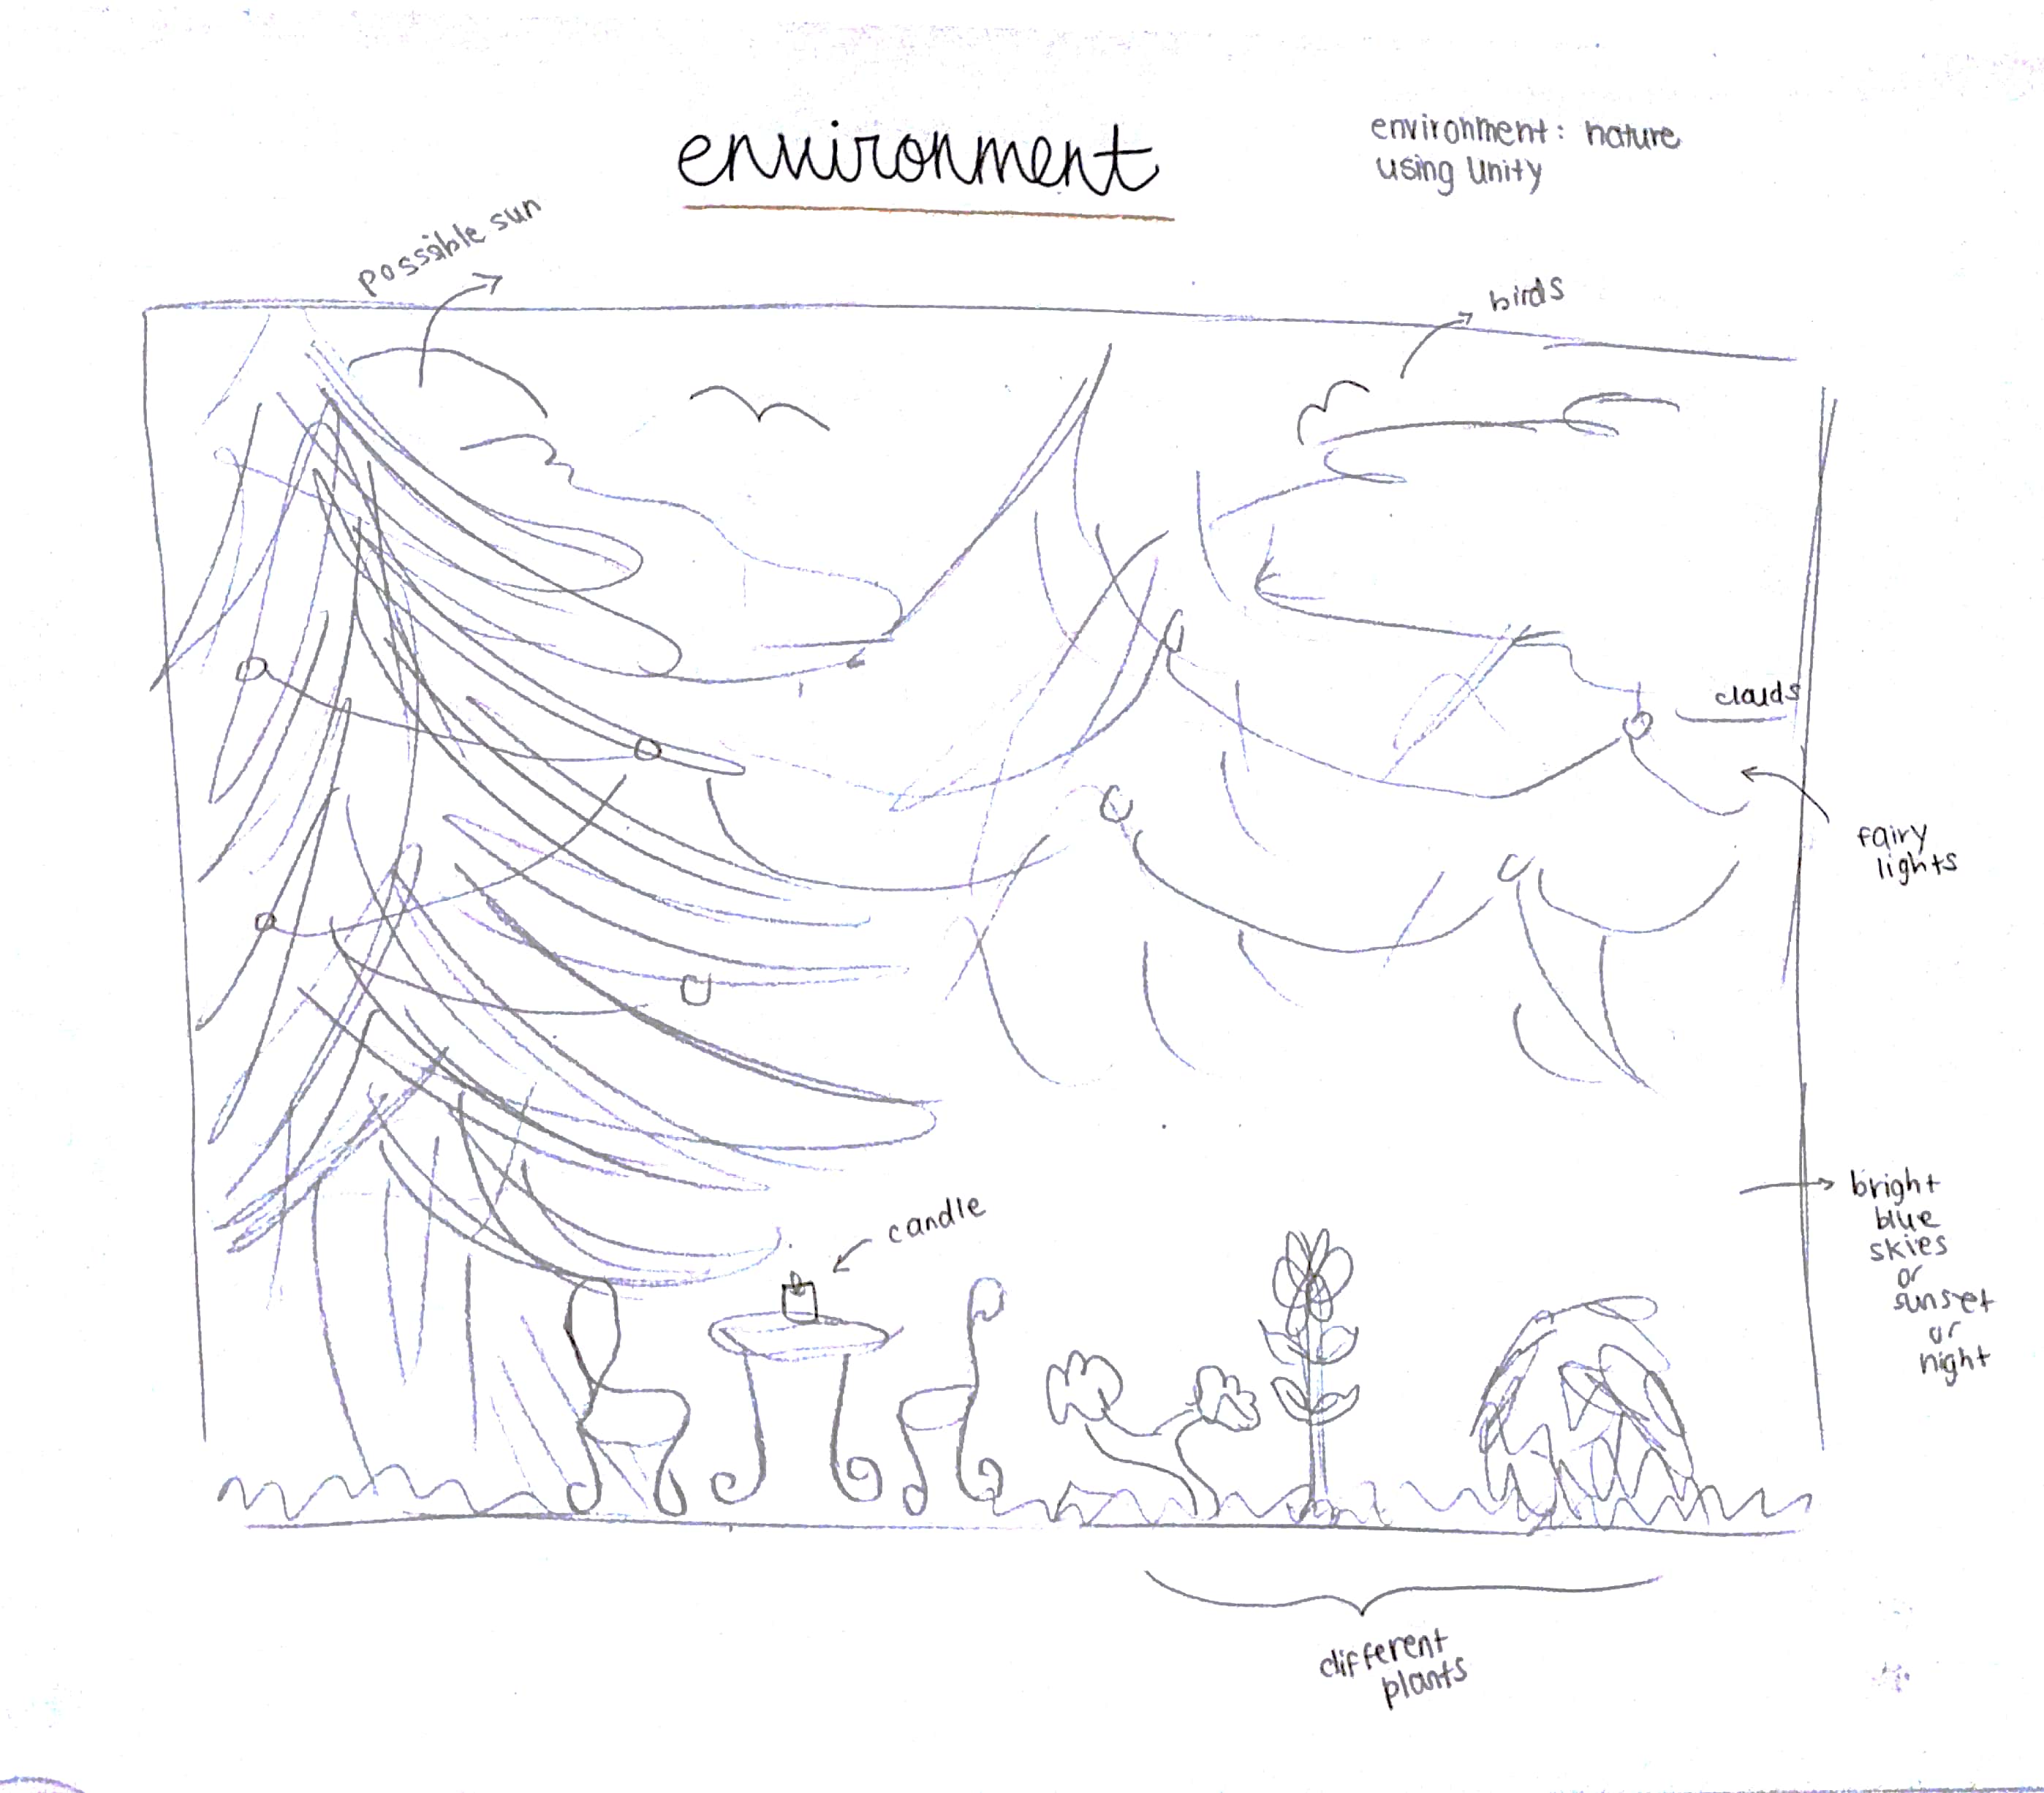 environment
environment: nature
using Unity
possible sun
birds
clouds
fairy
lights
candle
bright
blue
skies
or
sunset
or
night
different
plants